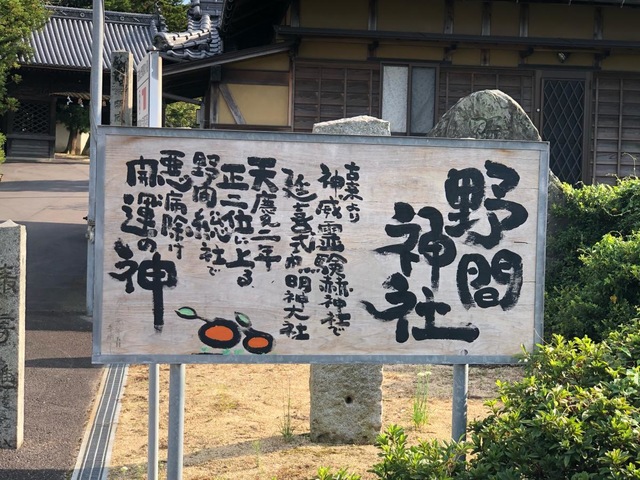 野間
神社
古来より
神威霊験の神社で
延喜式内明神大社
天慶二年
正二位に上る
野間総社で
悪病除け
開運の神